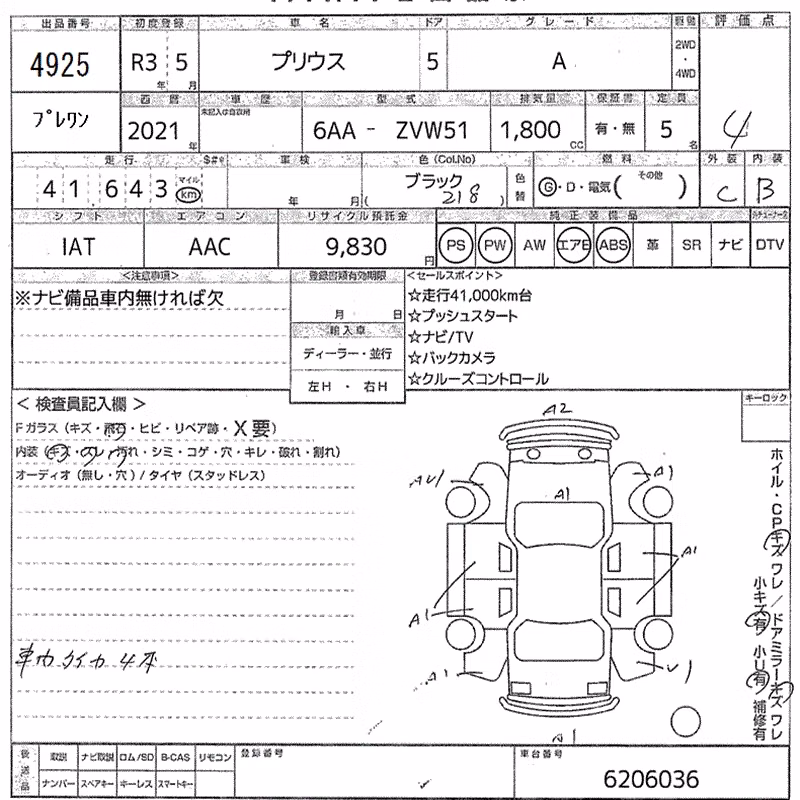 出品番号 初度登録 車名 ドア グレード 駆動 評価点
4925 R3年 5月 プリウス 5 A 2WD・4WD 4
プレワン
西暦 車歴 型式 排気量 保証書 定員
2021年 未記入は自家用 6AA - ZVW51 1,800cc 有・無 5名
走行 $#* 車検 色(Col.No) 燃料 外装 内装
41,643 マイル km 年 月 ブラック (218) 色替 G・D・電気( その他 ) C B
シフト エアコン リサイクル預託金 純正装備品
IAT AAC 9,830円 PS PW AW エアB ABS 革 SR ナビ DTV
<注意事項> 登録書類有効期限 <セールスポイント>
※ナビ備品車内無ければ欠
月 日
輸入車
ディーラー・並行
左H ・ 右H
☆走行41,000km台
☆プッシュスタート
☆ナビ/TV
☆バックカメラ
☆クルーズコントロール
キーロック
< 検査員記入欄 >
Fガラス(キズ・飛石・ヒビ・リペア跡・X要)
内装(キズ・スレ・汚れ・シミ・コゲ・穴・キレ・破れ・割れ)
オーディオ(無し・穴)/タイヤ(スタッドレス)
A2
AU1 A1
A1
A1
A1
A1 U1
A1
車カタイカ4本
ホイル・CPキズ ワレ/ドアミラーキズ ワレ
小キズ有 小U有 補修有
後送品 取説 ナビ取説 ロム/SD B-CAS リモコン 登録番号 車台番号
ナンバー スペアキー キーレス スマートキー 6206036